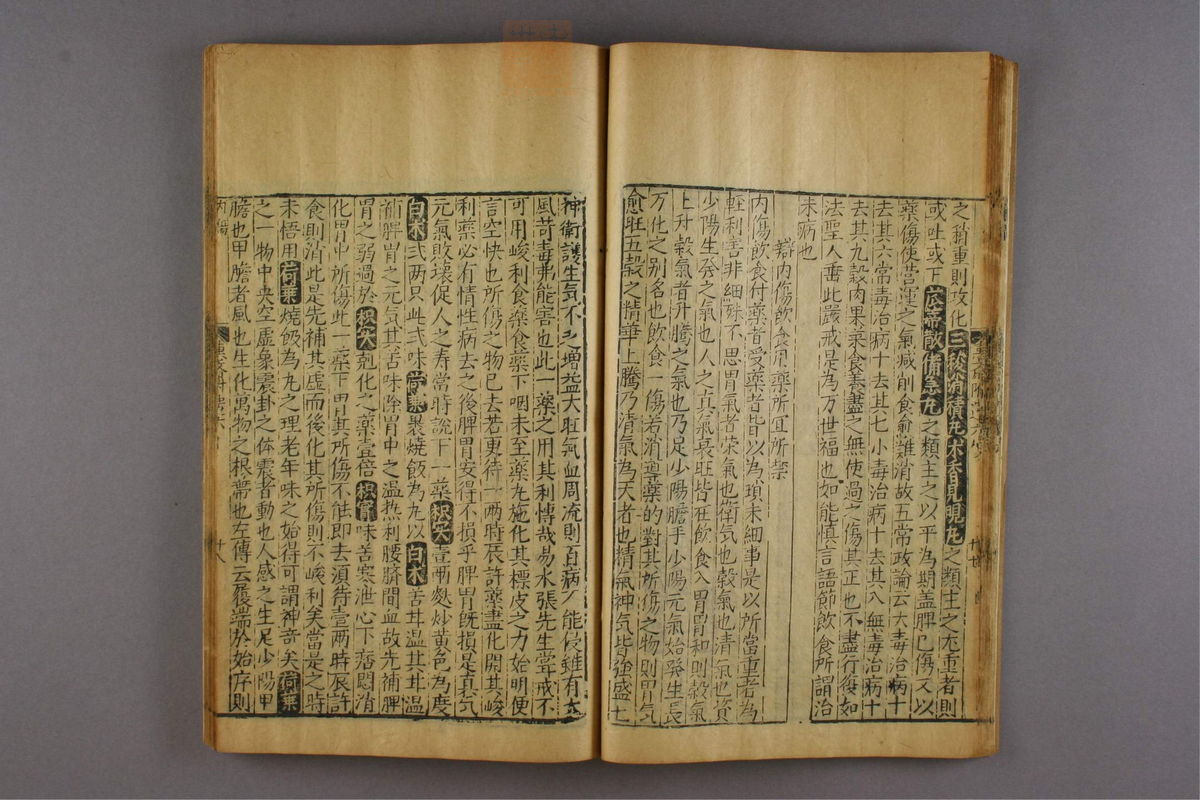 之稍重則攻化三稜消積丸木香見晛丸之類主之尤重者則
或吐或下瓜蔕散備急丸之類主之以平為期盖脾已傷又以
藥傷使营運之气减削食愈難消故五常政論云大毒治病十
去其六常毒治病十去其七小毒治病十去其八無毒治病十
去其九穀肉果菜食養盡之無使過之傷其正也不盡行復如
法聖人垂此嚴戒是為万世福也如能慎言語節飲食所謂治
未病也
辯内傷飲食用藥所宜所禁
内傷飲食付藥者受藥者皆以為瑣末細事是以所當重者為
輕利害非細殊不思胃氣者荣氣也衛气也穀氣也清氣也資
少陽生發之氣也人之真氣衰旺皆在飲食入胃胃和則穀氣
上升穀氣者升騰之氣也乃足少陽膽手少陽元氣始發生長
万化之别名也飲食一傷若消導藥的對其所傷之物則胃气
愈旺五穀之精華上騰乃清氣為天者也精氣神气皆強盛七
神衛護生气不乏增益大旺气血周流則百病不能侵雖有大
風苛毒弗能害也此一藥之用其利愽哉易水張先生甞戒不
可用峻利食藥食藥下咽未至藥丸施化其標皮之力始明便
言空快也所傷之物已去若更待一兩時辰許藥盡化開其峻
利藥必有情性病去之後脾胃安得不損乎脾胃旣損是真气
元氣敗壞促人之寿當時說下一藥枳实壹兩麩炒黄色為度
白术弍两只此弍味荷葉裹燒飯為丸以白术苦甘温其甘温
補脾胃之元气其苦味除胃中之温热利腰臍間血故先補脾
胃之弱過於枳实尅化之藥壹倍枳實味苦寒泄心下痞悶消
化胃中所傷此一藥下胃其所傷不能即去須待壹兩時辰許
食則消此是先補其虛而後化其所傷則不峻利矣當是之時
未悟用荷葉燒飯為丸之理老年味之始得可謂神奇矣荷葉
之一物中央空虛象震卦之体震者動也人感之生足少陽甲
膽也甲膽者風也生化萬物之根蔕也左傳云履端於始序則
内傷
十八